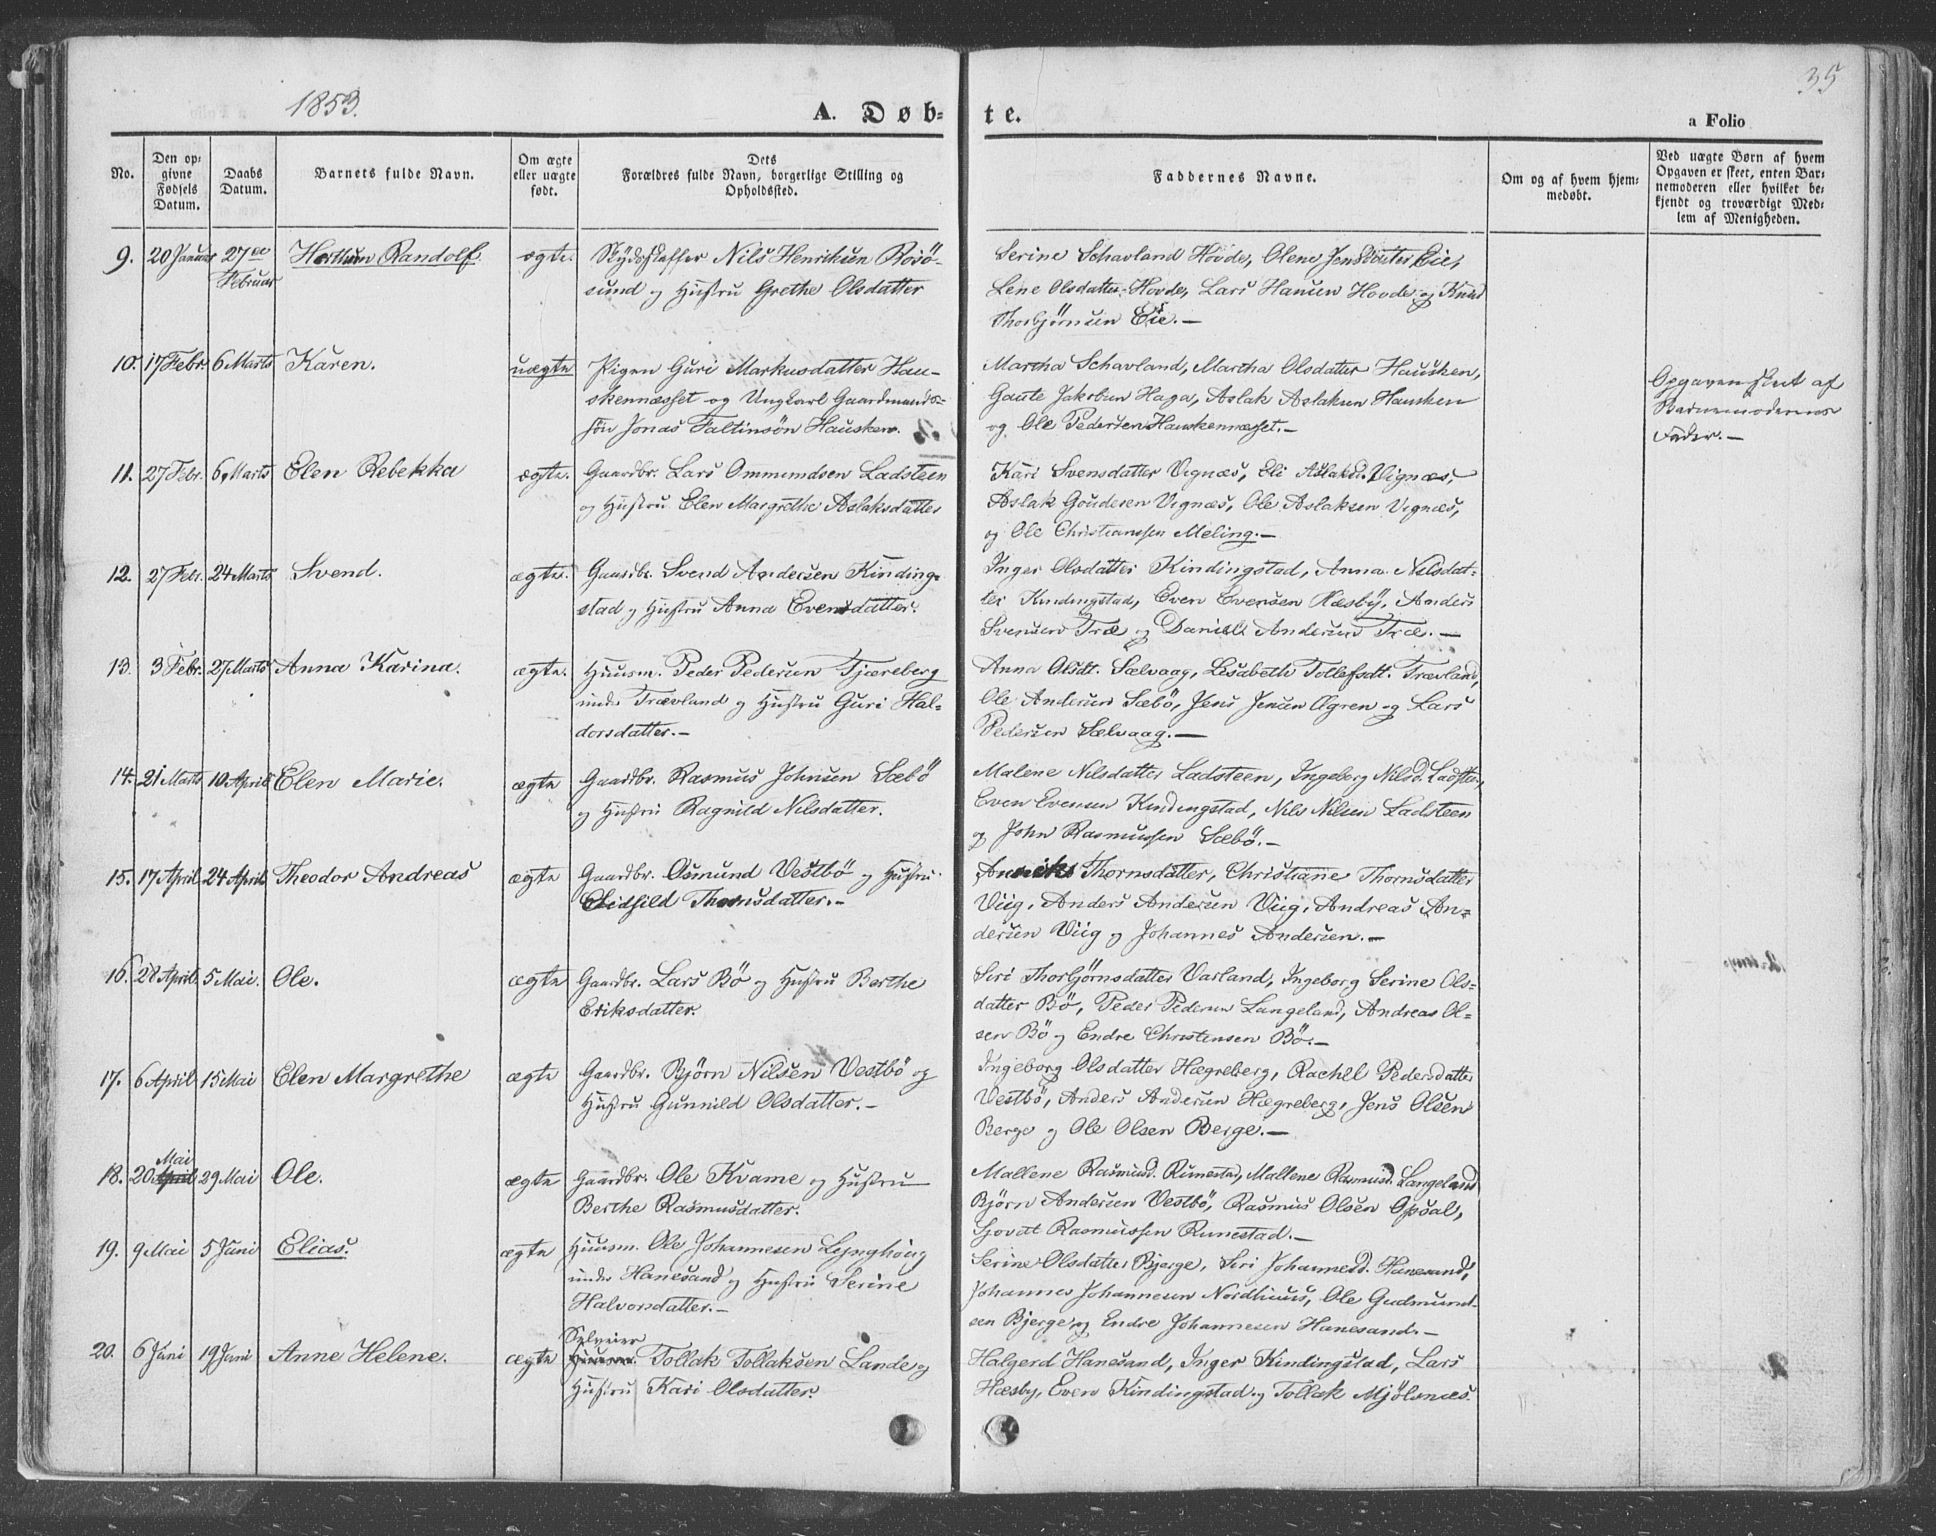 1853.
A. Døb-
te.
35
a Folio
No.
Den op-
givne
Fødsels
Datum.
Daabs
Datum.
Barnets fulde Navn.
Om ægte
eller uægte
født.
Dets
Forældres fulde Navn, borgerlige Stilling og
Opholdssted.
Faddernes Navne.
Om og af hvem hjem-
medøbt.
Ved uægte Børn af hvem
Opgaven er skeet, enten Bar-
nemoderen eller hvilket be-
kjendt og troværdigt Med-
lem af Menigheden.
9. 20 Januar 27de Februar Randolf ægte. Skydsskaffer Nils Henriksen Rosö-
sund og Hustru Grethe Olsdatter
Serine Schavland Hovde, Olene Jensdatter Eie,
Lene Olsdatter Hovde, Lars Hansen Hovde og Knud
Thorbjørnsen Eie.—
10. 17 Febr. 6 Marts Karen. uægte Pigen Guri Markusdatter Hau-
skennæsset og Ungkarl Gaardmands-
søn Jonas Faltinsøn Hausken.
Martha Schavland, Martha Olsdatter Hausken,
Gaute Jakobsen Haga, Aslak Aslaksen Hausken
og Ole Pedersen Hauskennæsset.—
Opgaven skeet af
Barnemoderens
Fader.—
11. 27 Febr. 6 Marts Elen Rebekka ægte. Gaardbr. Lars Ommundsen Ladsteen
og Hustru Elen Margrethe Aslaksdatter
Kari Svensdatter Vignæs, Eli Aslaksd. Vignæs,
Aslak Goudesen Vignæs, Ole Aslaksen Vignæs,
og Ole Christianssen Meling.—
12. 27 Febr. 24 Marts Svend. ægte. Gaardbr. Svend Andersen Kinding-
stad og Hustru Anna Evensdatter.
Inger Olsdatter Kindingstad, Anna Nilsdat-
ter Kindingstad, Even Evensen Næsby, Anders
Svensen Træ og Daniel Andersen Træ.—
13. 3 Febr. 27 Marts Anna Karina. ægte. Huusm. Peder Pedersen Tjæreberg
under Trævland og Hustru Guri Hal-
dorsdatter.—
Anna Olsdt. Sælvaag, Lisabeth Tollefsdt. Trævland,
Ole Andersen Sæbö, Jens Jensen Øgren og Lars
Pedersen Sælvaag.—
14. 21 Marts 10 April Elen Marie. ægte Gaardbr. Rasmus Johnsen Sæbö
og Hustru Ragnild Nilsdatter.
Malene Nilsdatter Ladsteen, Ingeberg Nilsd. Ladsteen,
Even Evensen Kindingstad, Nils Nilsen Ladsteen
og John Rasmussen Sæbö.—
15. 17 April 24 April Theodor Andreas ægte Gaardbr. Osmund Vestbö og Hustru
Thornsdatter.—
Thornsdatter, Christiane Thornsdatter
Viig, Anders Andersen Viig, Andreas An-
dersen Viig og Johannes Andersen.—
16. 28 April 5 Mai. Ole. ægte Gaardbr. Lars Bö og Hustru Berthe
Eriksdatter.
Siri Thorbjørnsdatter Varland, Ingeborg Serine Ols-
datter Bö, Peder Pedersen Langeland, Andreas Ol-
sen Bö og Endre Christensen Bö.—
17. 6 April 15 Mai Elen Margrethe ægte Gaardbr. Bjørn Nilsen Vestbö og
Hustru Gunnild Olsdatter.—
Ingeborg Olsdatter Hægreberg, Rachel Pedersdatter
Vestbö, Anders Andersen Hægreberg, Jens Olsen
Berge og Ole Olsen Berge.—
Mai
18. 20 April 29 Mai Ole. ægte Gaardbr. Ole Kvame og Hustru
Berthe Rasmusdatter.
Mallene Rasmusd. Rimestad, Mallene Rasmusd. Langeland
Bjørn Andersen Vestbö, Rasmus Olsen Opsal,
Sjovat Rasmussen Rimestad.—
19. 9 Mai 5 Juni Elias. ægte Huusm. Ole Johannesen Lynghoug
under Hanesand og Hustru Serine
Halvorsdatter.—
Serine Olsdatter Bjerge, Siri Johannesd. Hanesand,
Johannes Johannesen Nordhuus, Ole Gudmund-
sen Bjerge og Endre Johannesen Hanesand.—
20. 6 Juni 19 Juni Anne Helene. ægte Selveier
Huusm. Tollak Tollaksen Lande og
Hustru Kari Olsdatter.
Halgerd Hanesand, Inger Kindingstad, Lars
Hæsby, Even Kindingstad og Tollak Mjölsnæs.